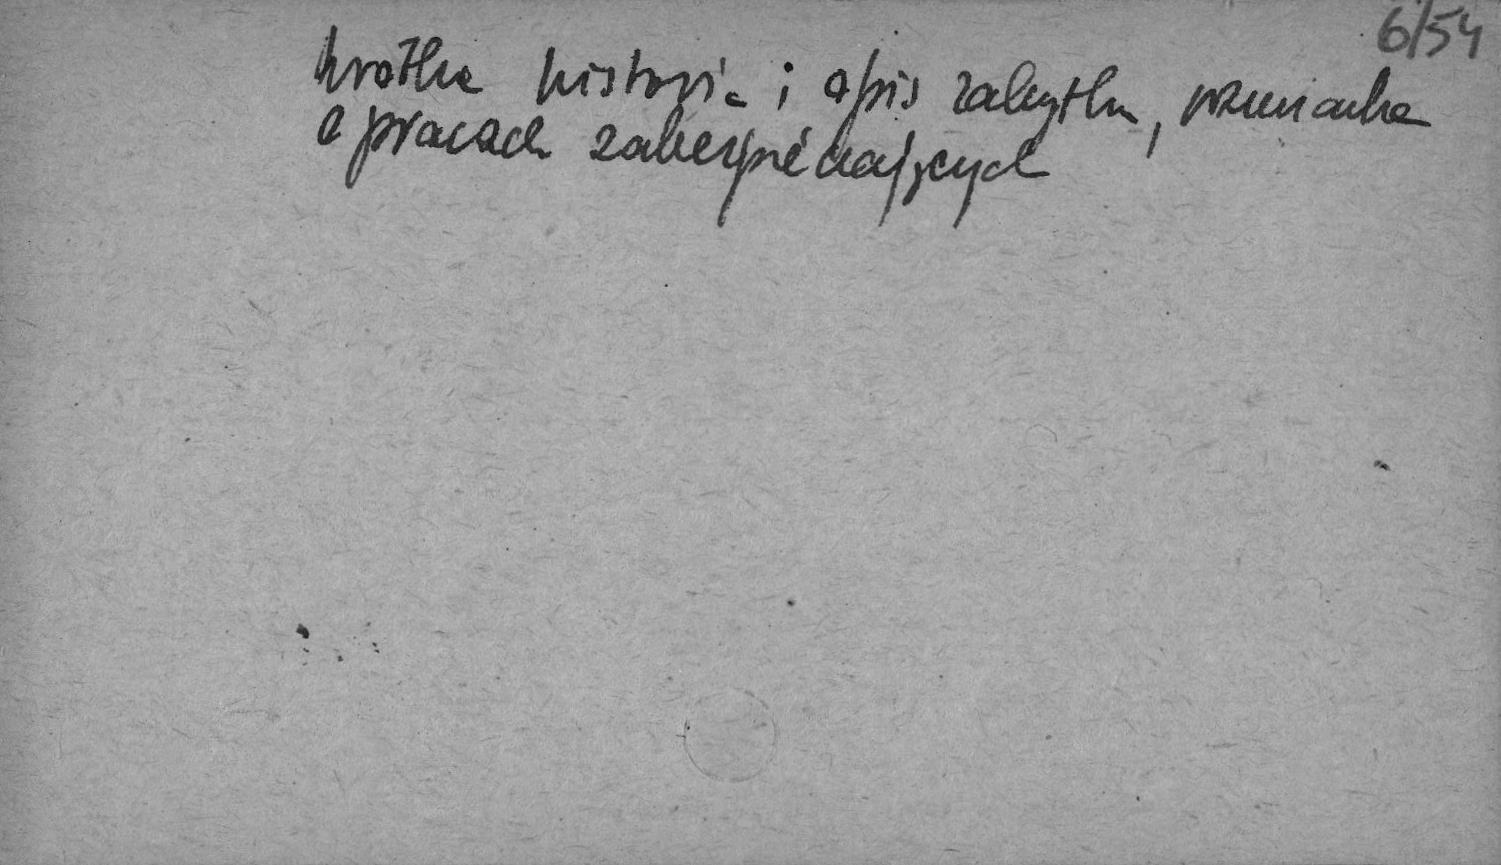 6/54
krótka historia i opis zabytku, wzmianka
o pracach zabezpieczających